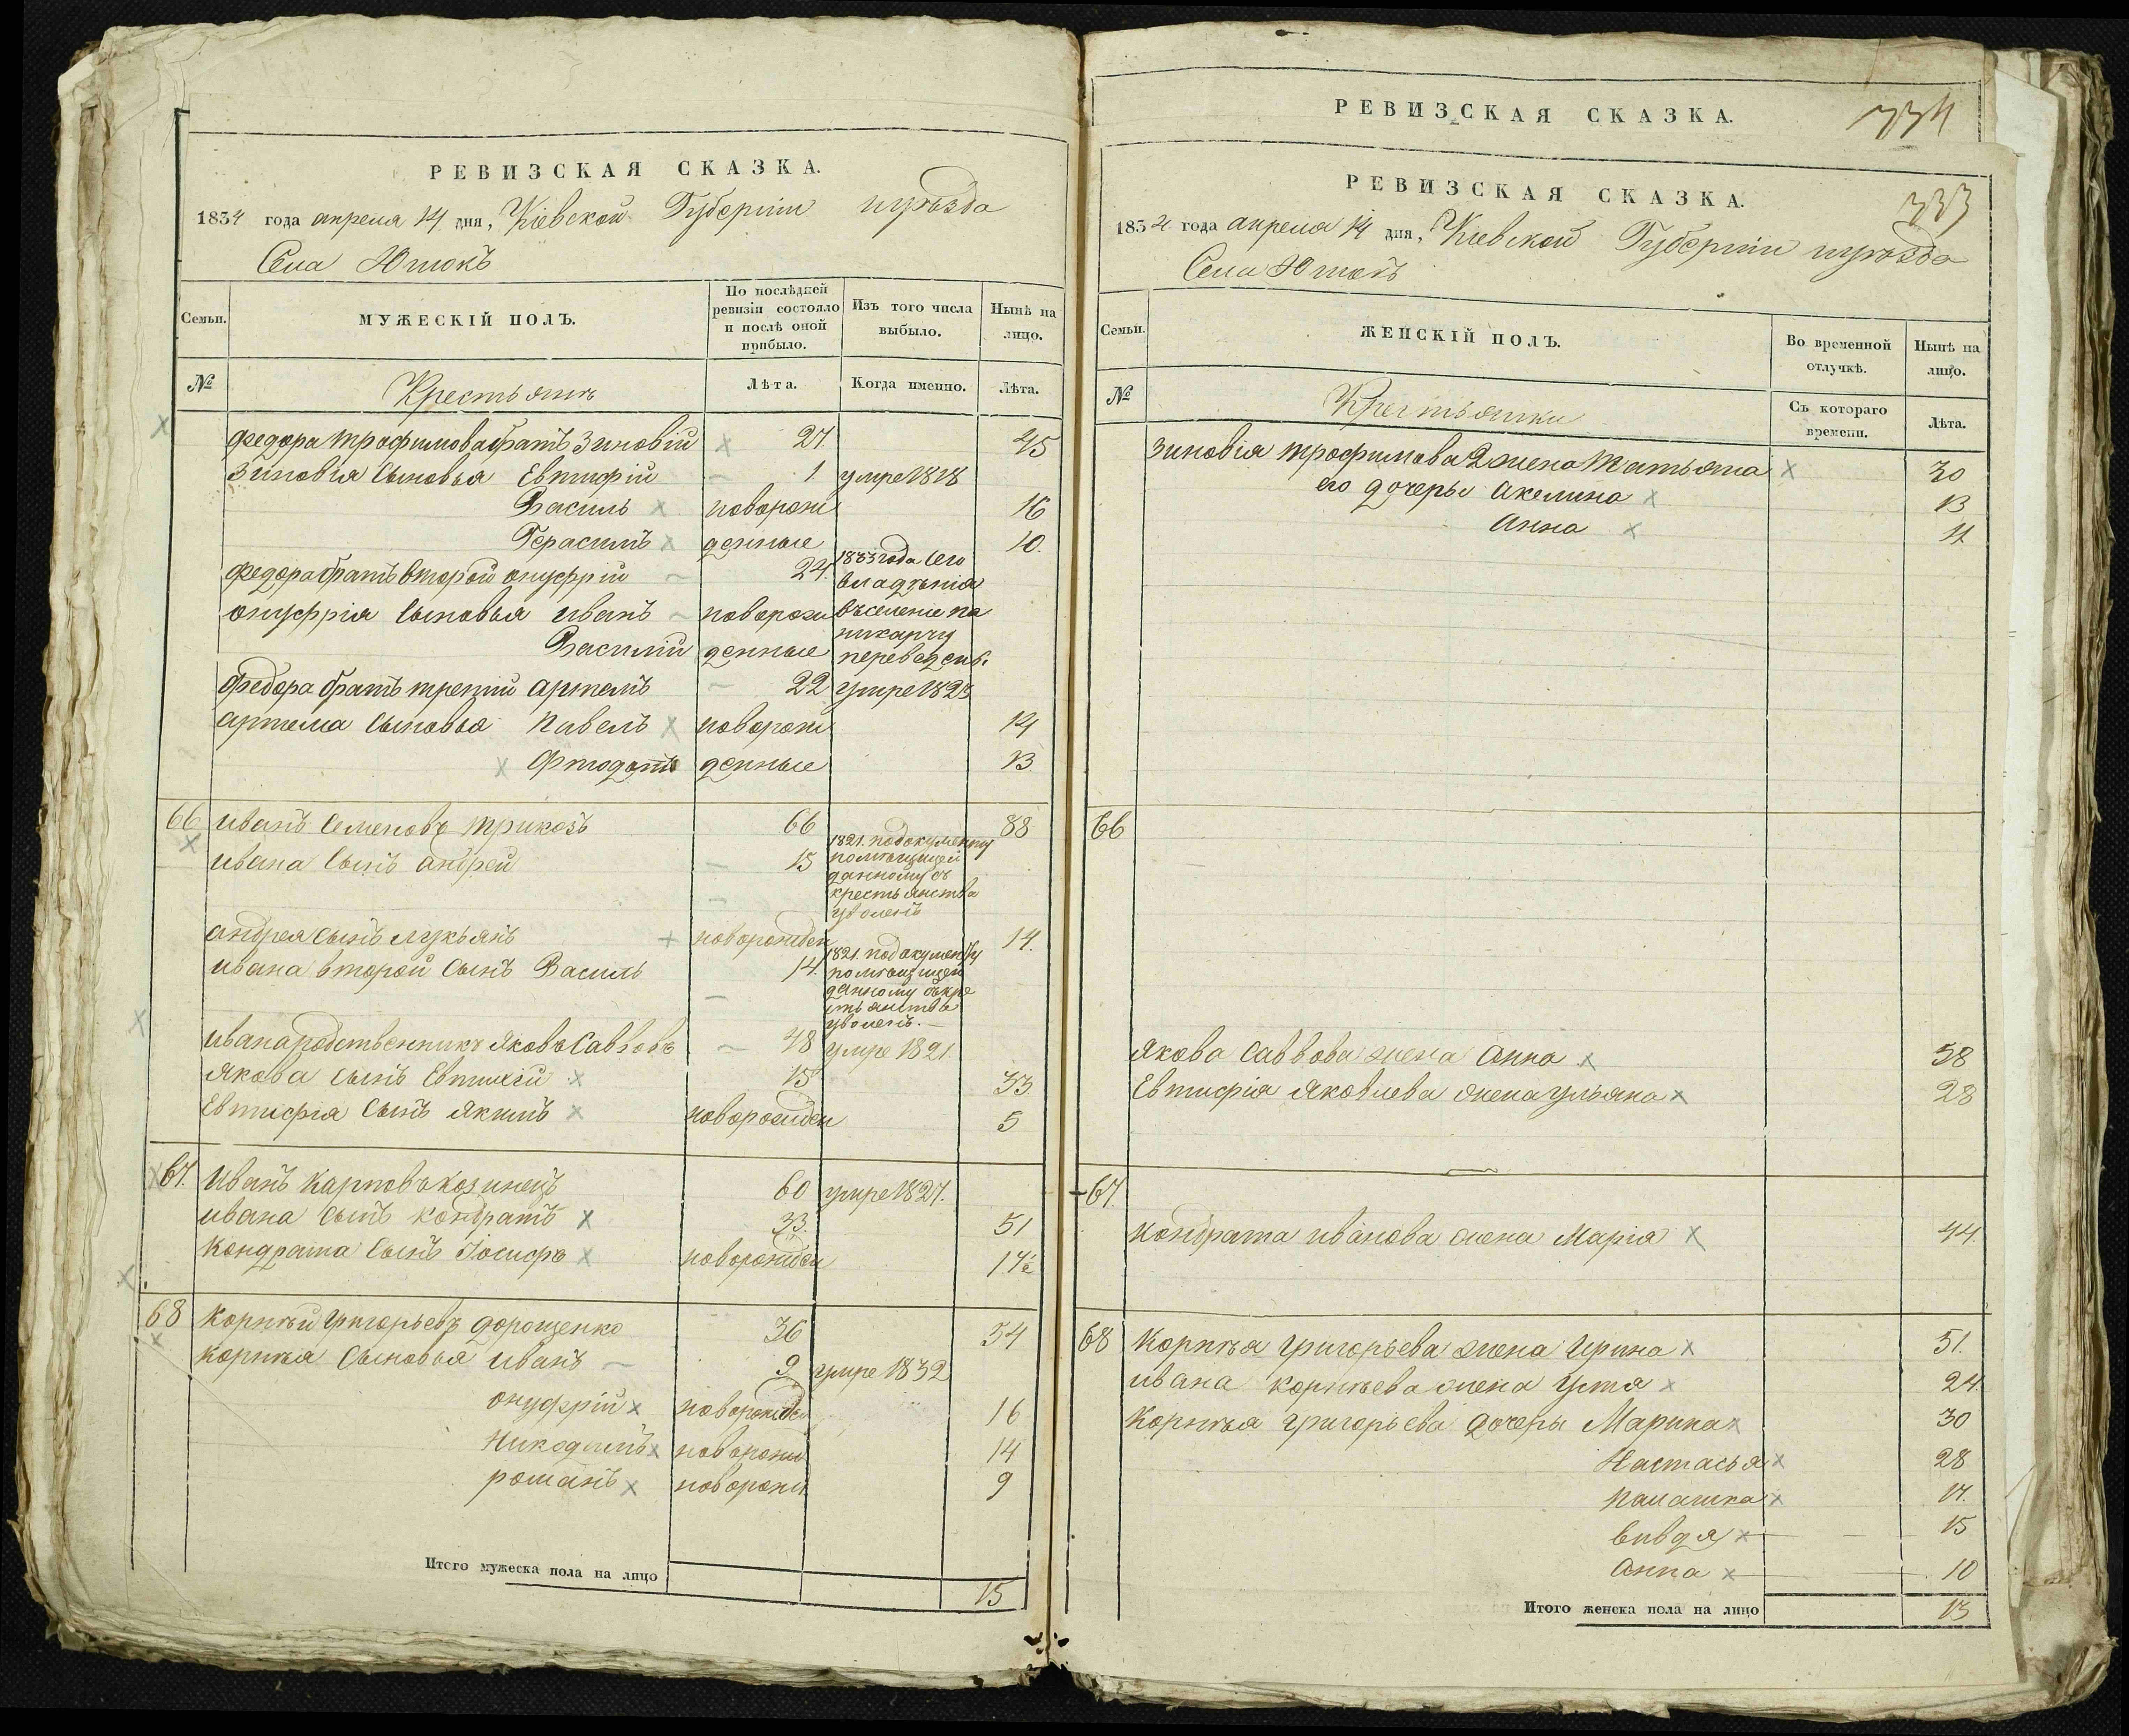 РЕВИЗСКАЯ СКАЗКА.
1834 года апреля 14 дня, Кіевской Губерніи иуѣзда
Села Юшокъ
Семьи.
МУЖЕСКІЙ ПОЛЪ.
По послѣдней ревизіи состояло и послѣ оной прибыло.
Изъ того числа выбыло.
Нынѣ на лицо.
№
Крестьянъ
Лѣта.
Когда именно.
Лѣта.
Федора Трофимова братъ Зиновій 27 45
Зиновія Сыновья Евтифій 1 умре 1818
Василь новорож 16
Герасимъ денные 10.
Федора братъ второй онуфрій 24. 1833 года Сего
владѣнія
онуфрія Сыновья иванъ новорож въселеніе па
никарчу
Василій денные переведены.
Федора братъ третій артемъ 22 умре 1823
артема Сыновья Павелъ новорож 14
денные 13.
66 иванъ Семеновъ трикозъ 66 88
ивана Сынъ андрей 15 1821. подокументу
помѣщицей
данному съ
крестьянства
уволенъ
андрея Сынъ лукьянъ новорожден 14.
ивана второй Сынъ Василь 14. 1821. подокументу
помѣщицей
данному съкре
стьянства
уволенъ.
ивана родственникъ Яковъ Саввовъ 48 умре 1821.
Якова Сынъ Евтихій 15 33
Евтифія Сынъ Якимъ новорожден 5
67. Иванъ Карповъ козинецъ 60 умре 1827.
ивана Сынъ кондратъ 33. 51
Кондрата Сынъ Іосифъ новорожден 1 ½
68 Корнѣй Григорьевъ дорощенко 36 54
Корнѣя Сыновья иванъ 9 умре 1832
онуфрій новорожден 16
Никодимъ новорож 14
романъ новорож 9
Итого мужеска пола на лицо 15
РЕВИЗСКАЯ СКАЗКА.
334
РЕВИЗСКАЯ СКАЗКА.
333
1834 года апреля 14 дня, Кіевской Губерніи иуѣзда
Села Юшокъ
Семьи.
ЖЕНСКІЙ ПОЛЪ.
Во временной отлучкѣ.
Нынѣ на лицо.
№
Крестьянки
Съ котораго времени.
Лѣта.
Зиновія трофимова 2 жена Татьяна 30
его дочеры акелина 13
Анна 11
66
Якова Саввова жена Анна 58
Евтифія Яковлева жена ульяна 28
67.
Кондрата иванова жена Марія 44.
68 Корнѣя григорьева жена Ирина 51.
ивана корнѣева жена Устя 24.
Корнѣя григорьева дочеры Марина 30
Настасья 28
Палашка 17.
вивдя 15
Анна 10
Итого женска пола на лицо 13